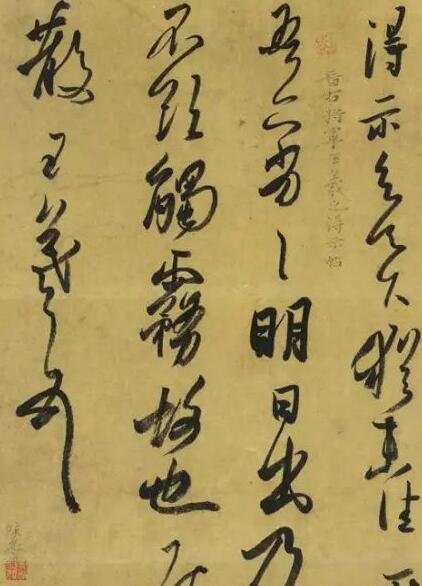 得示知足下猶未佳
晉右將軍王羲之得示帖
吾亦劣々明日出乃
不欲觸霧故也
散王羲之頓首